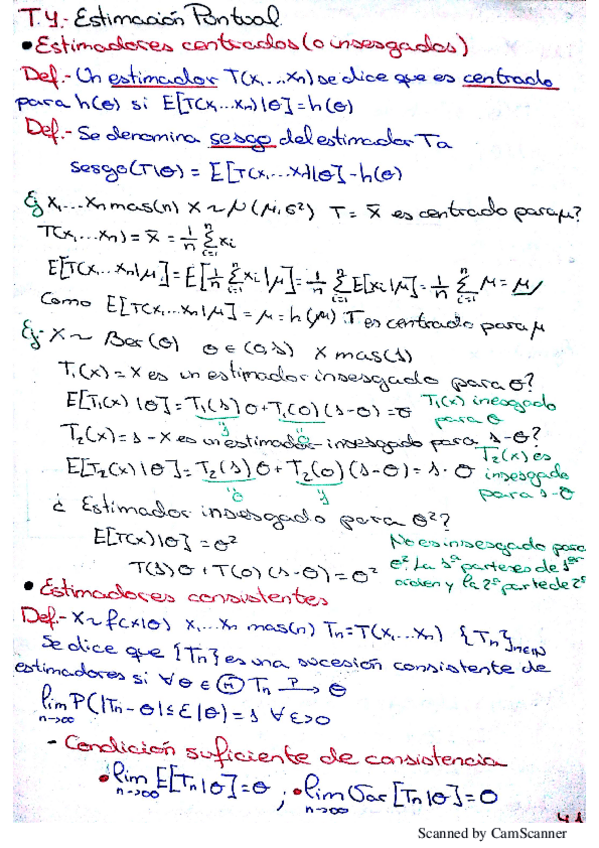 T.4.- Estimación Puntual
• Estimadores centrados (o insesgados)
Def.- Un estimador T(x1...xn) se dice que es centrado
para h(θ) si E[T(x1...xn)|θ] = h(θ)
Def.- Se denomina sesgo del estimador T a
sesgo(T|θ) = E[T(x1...xn)|θ] - h(θ)
Ej x1...xn mas(n) X ~ N(μ,σ²) T = x̄ es centrado para μ?
T(x1...xn) = x̄ = 1/n Σ_{i=1}^{n} xi
E[T(x1...xn|μ] = E[1/n Σ_{i=1}^{n} xi|μ] = 1/n Σ_{i=1}^{n} E[xi|μ] = 1/n Σ_{i=1}^{n} μ = μ
Como E[T(x1...xn|μ] = μ = h(μ) T es centrado para μ
Ej- X ~ Ber(θ) θ ∈ (0,1) X mas(1)
T1(x) = x es un estimador insesgado para θ?
E[T1(x)|θ] = T1(1)θ + T1(0)(1-θ) = θ T1(x) insesgado
para θ
T2(x) = 1-x es un estimador insesgado para 1-θ?
E[T2(x)|θ] = T2(1)θ + T2(0)(1-θ) = 1-θ T2(x) es
insesgado
para 1-θ
¿ Estimador insesgado para θ²?
E[T(x)|θ] = θ²
T(1)θ + T(0)(1-θ) = θ²
No es insesgado para
θ². La 1ª parte es de 1er
orden y la 2ª parte de 2º
• Estimadores consistentes
Def.- X~f(x|θ) x1...xn mas(n) Tn = T(x1...xn) {Tn}n∈N
Se dice que {Tn} es una sucesión consistente de
estimadores si ∀θ ∈ Θ Tn →P θ
lim n→∞ P(|Tn-θ| ≤ ε|θ) = 1 ∀ε>0
- Condición suficiente de consistencia
• lim n→∞ E[Tn|θ] = θ ; • lim n→∞ Var[Tn|θ] = 0
4.1
Scanned by CamScanner